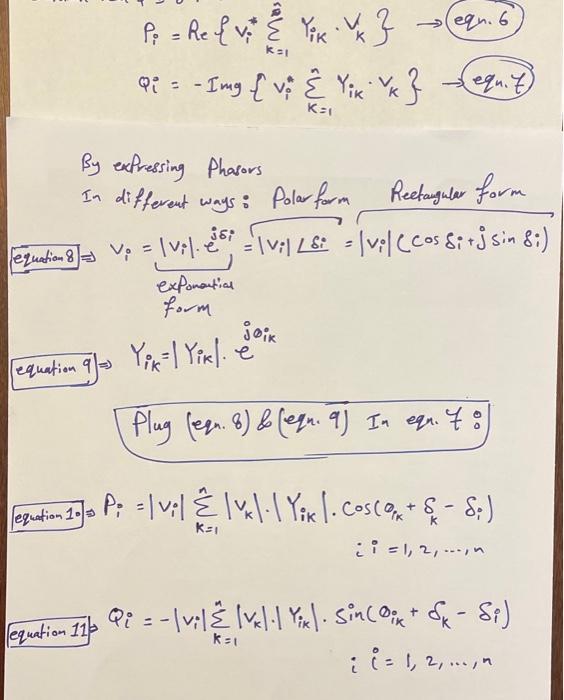 Pi = Re { Vi* Σ(k=1 to n) Yik · Vk } → eqn. 6
Qi = -Img { Vi* Σ(k=1 to n) Yik · Vk } → eqn. 7
By expressing Phasors
In different ways: Polar form Rectangular form
equation 8 ⇒ Vi = |Vi| · e^(jδi) = |Vi| ∠δi = |Vi| (cos δi + j sin δi)
exponential
form
equation 9 ⇒ Yik = |Yik| · e^(jθik)
Plug (eqn. 8) & (eqn. 9) In eqn. 7 :
equation 10 ⇒ Pi = |Vi| Σ(k=1 to n) |Vk| · |Yik| · cos(θik + δk - δi)
; i = 1, 2, ..., n
equation 11 ⇒ Qi = -|Vi| Σ(k=1 to n) |Vk| · |Yik| · sin(θik + δk - δi)
; i = 1, 2, ..., n